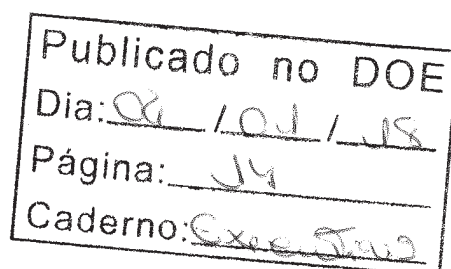 Publicado no DOE
Dia: / 01 / 18
Página: 14
Caderno: Executivo